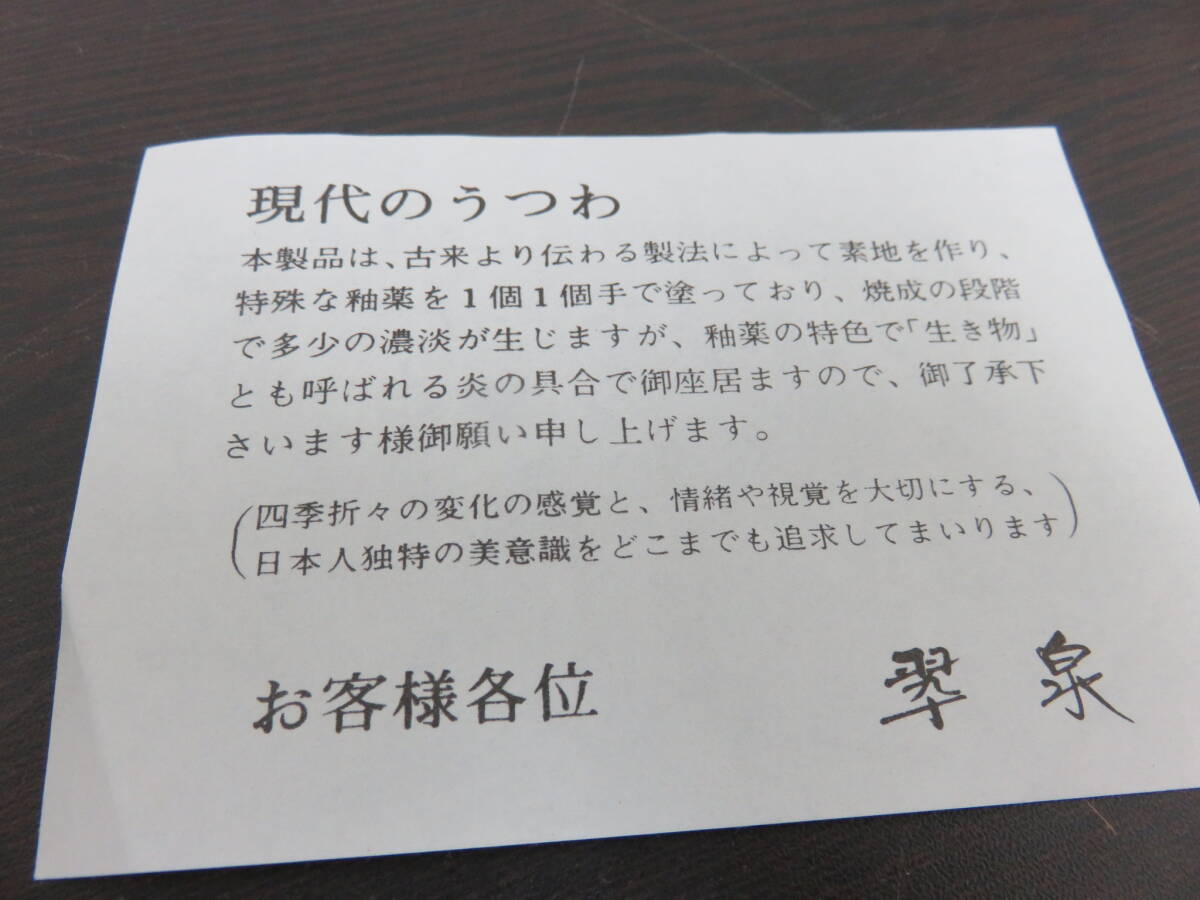 現代のうつわ
本製品は、古来より伝わる製法によって素地を作り、
特殊な釉薬を1個1個手で塗っており、焼成の段階
で多少の濃淡が生じますが、釉薬の特色で「生き物」
とも呼ばれる炎の具合で御座居ますので、御了承下
さいます様御願い申し上げます。
(四季折々の変化の感覚と、情緒や視覚を大切にする、
日本人独特の美意識をどこまでも追求してまいります)
お客様各位
翠泉